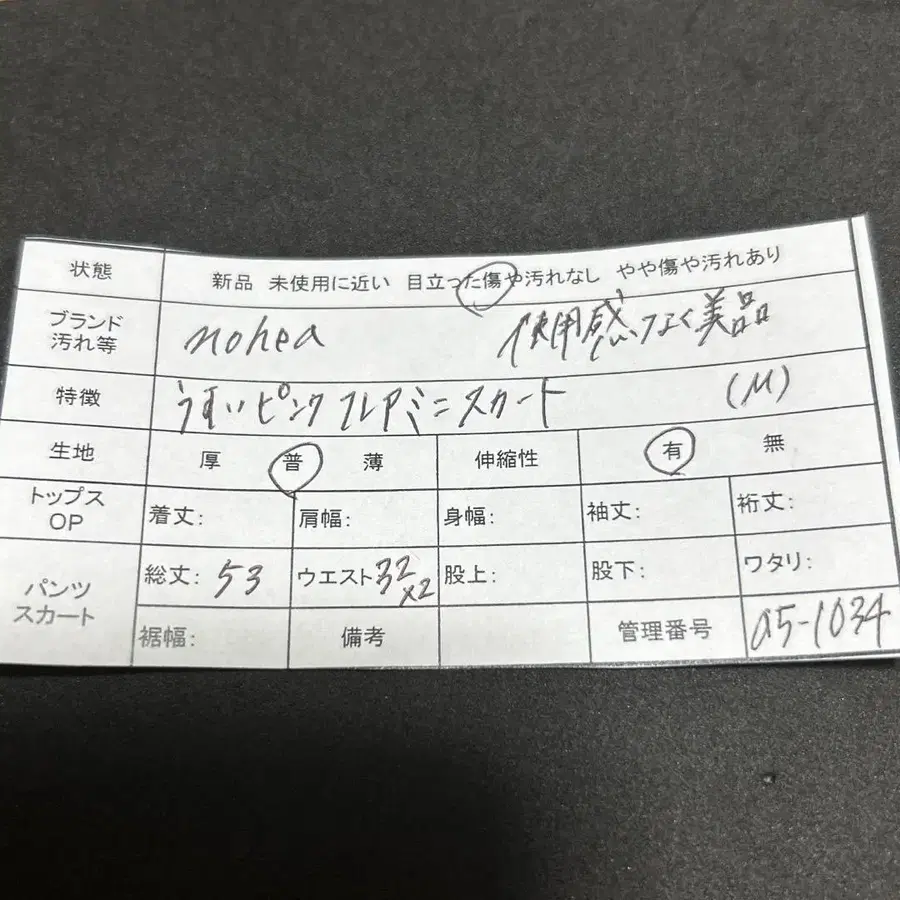 状態 新品 未使用に近い 目立った傷や汚れなし やや傷や汚れあり
ブランド
汚れ等 nohea 使用感なく美品
特徴 うすいピンク フレアミニスカート (M)
生地 厚 普 薄 伸縮性 有 無
トップス
OP 着丈: 肩幅: 身幅: 袖丈: 裄丈:
パンツ
スカート 総丈: 53 ウエスト 32
×2 股上: 股下: ワタリ:
裾幅: 備考 管理番号 a5-1034